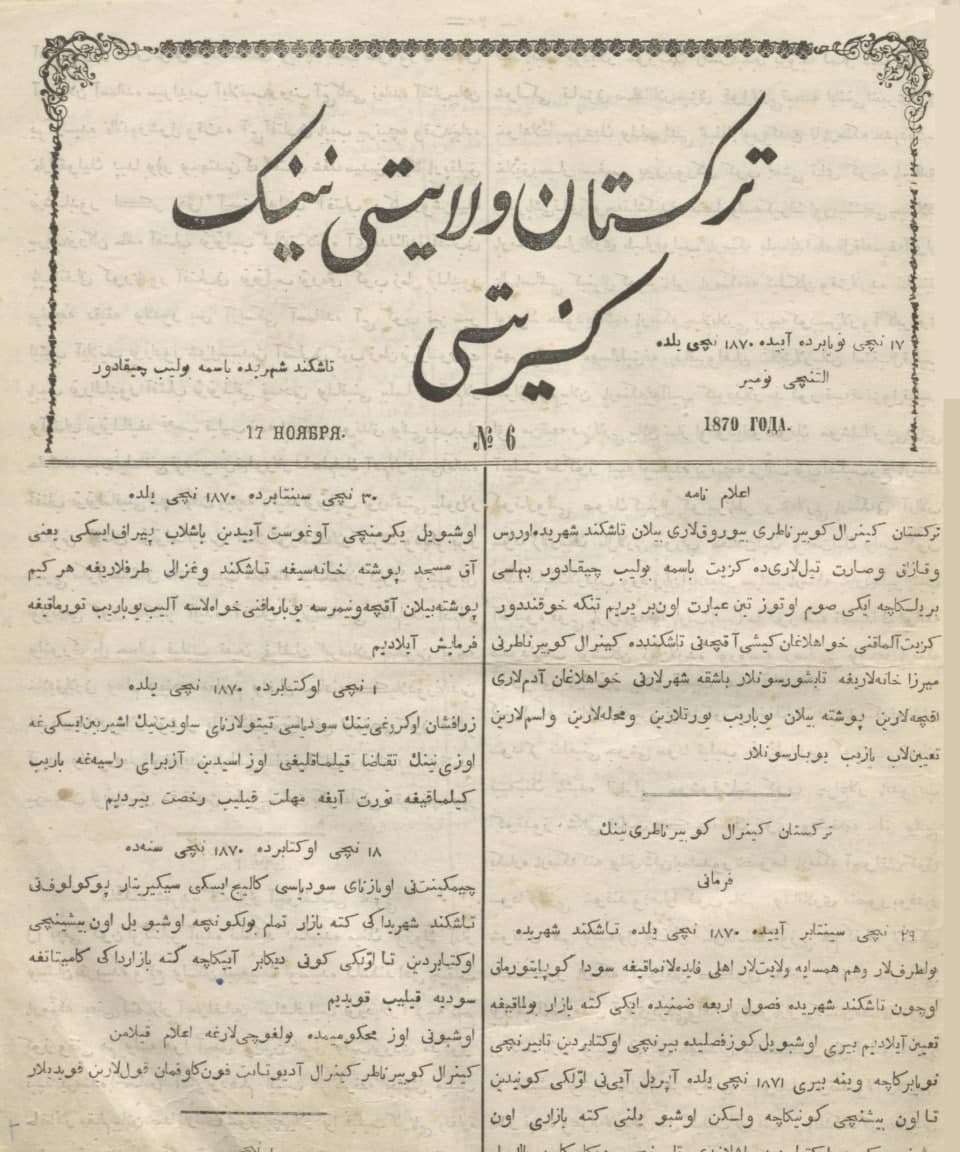 ترکستان ولایتی نینک
کزیتی
۱۷ نچی نویابرده آییده ۱۸۷۰ نچی یلده
التنچی نومیر
تاشکند شهریده باسمه بولیب چیقادور
1870 ГОДА.
№ 6
17 НОЯБРЯ.
اعلام نامه
ترکستان کینرال کوبیرناطری بیوروقلاری بیلان تاشکند شهریده اوروس
وقزاق وصارت تیللاری ده کزیت باسمه بولیب چیقادور بهاسی
بر یلکاچه ایکی صوم اوتوز تین عبارت اون بر یریم تنکه خوقنددور
کزیت آلماقنی خواهلاغان کیشی آقچه نی تاشکنده کینرال کوبیرناطرنی
میرزا خانه لاریغه تابشورسونلار باشقه شهرلارنی خواهلاغان آدم لاری
اقچه لارین پوشته بیلان یوباریب یورتلارین ومحله لارین واسم لارین
تعیین لاب یازیب یوبارسونلار
ترکستان کینرال کوبیرناطری نینک
فرمانی
۲۹ نچی سینتابر آییده ۱۸۷۰ نچی یلده تاشکند شهریده
بولطرف لار وهم همسایه ولایت لار اهلی فایده لانماقیغه سودا کوپایتورمانی
اوچون تاشکند شهریده فصول اربعه ضمنیده ایکی کته بازار بولماقیغه
تعیین آیلادیم بیری اوشبو یل کوز فصلیده بیرنچی اوکتابردین تا بیرنچی
نویابرکاچه وینه بیری ۱۸۷۱ نچی یلده آپریل آیی نی اوّلکی کونیدین
تا اون بیشنچی کونیکاچه ولسکن اوشبو یلنی کته بازاری اون
۳۰ نچی سینتابرده ۱۸۷۰ نچی یلده
اوشبو یل یکرمنچی آوغوست آییدین باشلاب پیراف ایسکی یعنی
آق مسجد پوشته خانه سیغه تاشکند وغزالی طرفلاریغه هر کیم
پوشته بیلان آقچه ونیمرسه یوبارماقنی خواهلاسه آلیب یوباریب تورماقیغه
فرمایش آیلادیم
۱ نچی اوکتابرده ۱۸۷۰ نچی یلده
زرافشان اوکروغی نینک سودیاسی تیتولارنای ساویت نیک اشیریین ایسکی غه
اوزی نینک تقاضا قیلماقلیغی اوز اسیدین آزبرای راسیه غه باریب
کیلماقیغه تورت آیغه مهلت قیلیب رخصت بیردیم
۱۸ نچی اوکتابرده ۱۸۷۰ نچی سنه ده
چیمکینت نی اویازنای سودیاسی کالیج ایسکی سیکیریتار پوکولوف نی
تاشکند شهریداکی کته بازار تمام بولکونچه اوشبو یل اون بیشینچی
اوکتابردین تا اوّلکی کونی دیکابر آییکاچه کته بازارداکی کامیتاتغه
سودیه قیلیب قویدیم
اوشبونی اوز محکومیمده بولغوچی لارغه اعلام قیلامن
کینرال کوبیرناطر کینرال آدیوتانت فون کاوفمان قول لارین قویدیلار